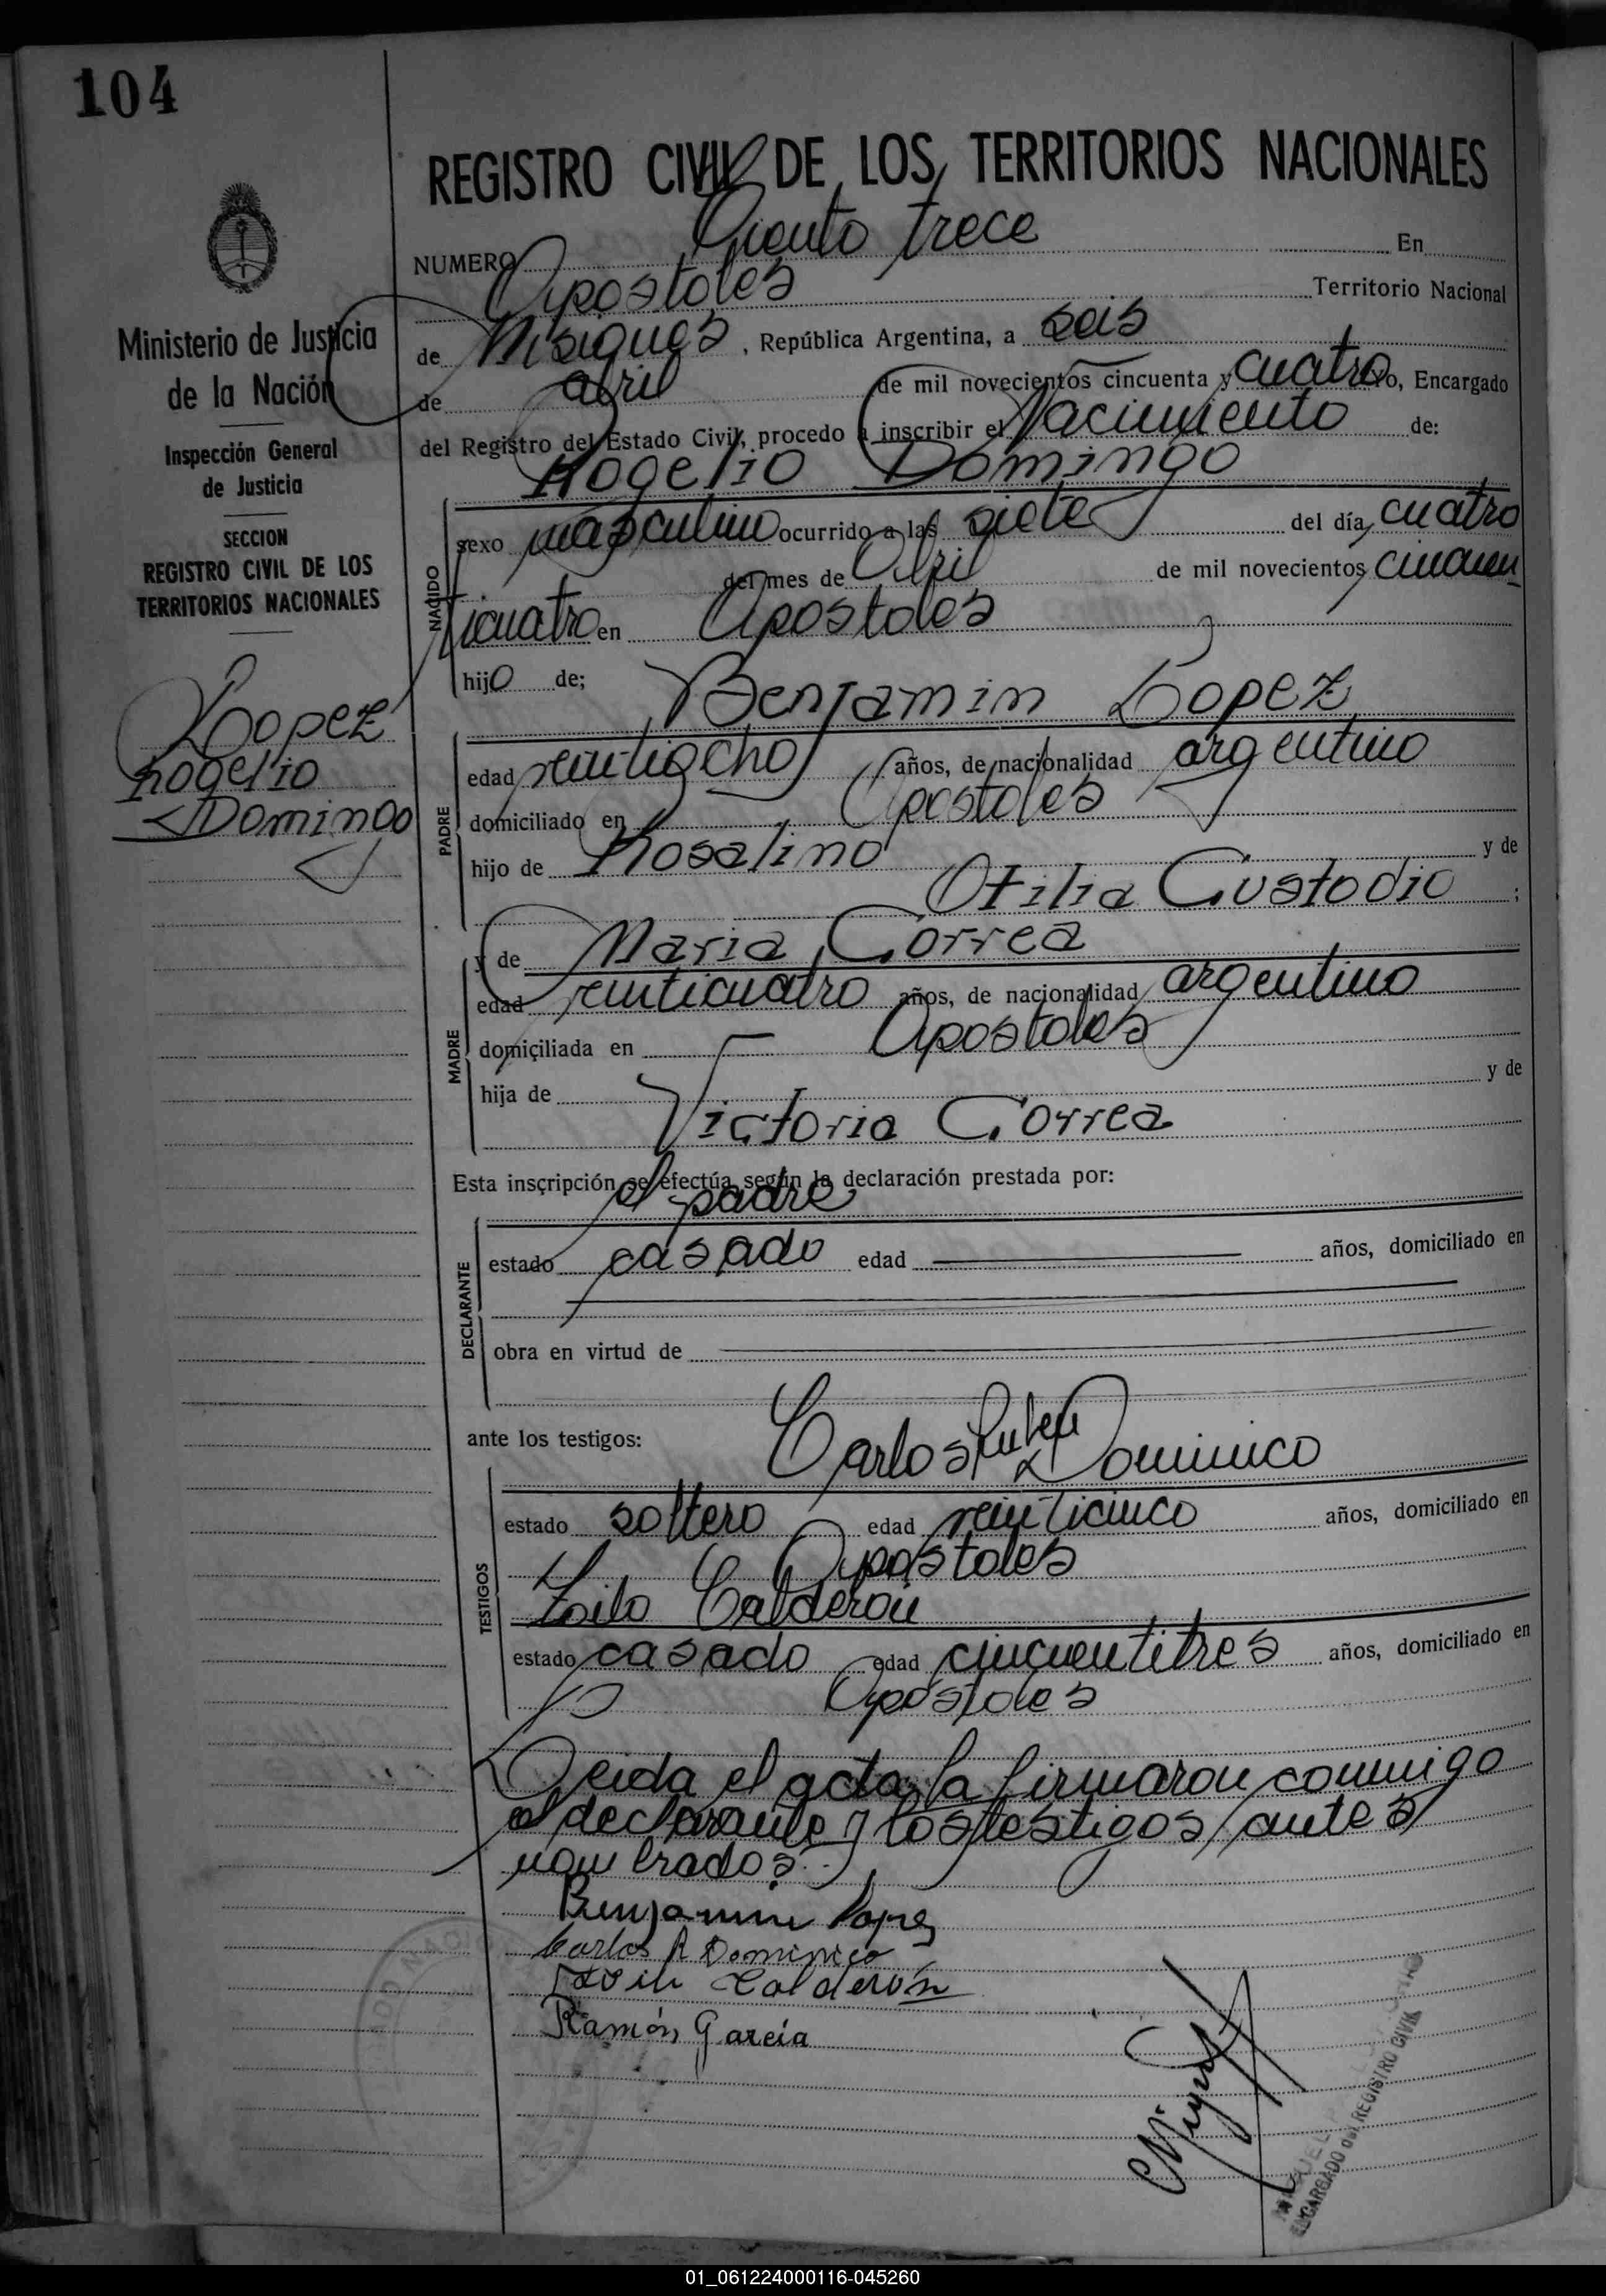 104
REGISTRO CIVIL DE LOS TERRITORIOS NACIONALES
NUMERO Ciento trece En
Apostoles Territorio Nacional
de Misiones, República Argentina, a seis
de abril de mil novecientos cincuenta y cuatro yo, Encargado
del Registro del Estado Civil, procedo a inscribir el Nacimiento de:
Rogelio Domingo
Ministerio de Justicia
de la Nación
Inspección General
de Justicia
SECCION
REGISTRO CIVIL DE LOS
TERRITORIOS NACIONALES
Lopez
Rogelio
Domingo
NACIDO
sexo masculino ocurrido a las siete del día cuatro
del mes de Abril de mil novecientos cincuen
ticuatro en Apostoles
hijo de; Benjamin Lopez
PADRE
edad veintiocho años, de nacionalidad argentino
domiciliado en Apostoles
hijo de Rosalino y de
Otilia Custodio ;
y de Maria Correa
MADRE
edad veinticuatro años, de nacionalidad argentino
domiciliada en Apostoles
hija de y de
Victoria Correa
Esta inscripción se efectúa según la declaración prestada por:
el padre
DECLARANTE
estado casado edad años, domiciliado en
obra en virtud de
ante los testigos: Carlos Ruben Dominico
TESTIGOS
estado soltero edad veinticinco años, domiciliado en
Apostoles
Zoilo Calderon
estado casado edad cincuentitres años, domiciliado en
Apostoles
Leida el acta, la firmaron conmigo
el declarante y los testigos antes
nombrados.
Benjamin Lopez
Carlos R Dominico
Zoilo Calderón
Ramón García
ENCARGADO del REGISTRO CIVIL
01_061224000116-045260